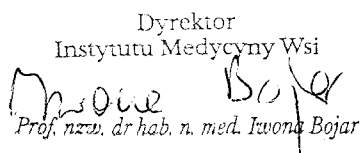 Dyrektor
Instytutu Medycyny Wsi
Iwona Bojar
Prof. nzw. dr hab. n. med. Iwona Bojar